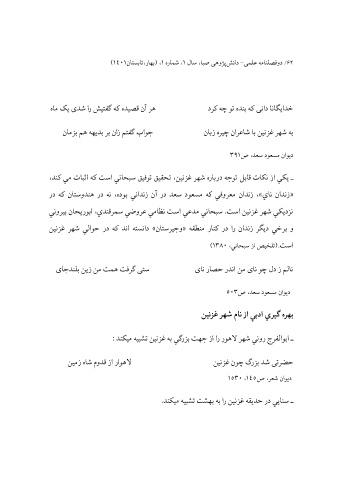 ۶۲/ دوفصلنامه علمی- دانش‌پژوهی صبا، سال ۱، شماره ۱، (بهار،تابستان۱۴۰۱)
خدایگانا دانی که بنده تو چه کرد هر آن قصیده که گفتیش را شدی یک ماه
به شهر غزنین با شاعران چیره زبان جواب گفتم زان بر بدیهه هم بزمان
دیوان مسعود سعد، ص۳۹۱
ـ يكي از نكات قابل توجه درباره شهر غزنين، تحقيق توفيق سبحاني است كه اثبات مي كند،
«زندان ناي»، زندان معروفي كه مسعود سعد در آن زنداني بوده، نه در هندوستان كه در
نزديكي شهر غزنين است. سبحاني مدعي است نظامي عروضي سمرقندي، ابوريحان بيروني
و برخي ديگر زندان را در كنار منطقه «وجيرستان» دانسته اند كه در حوالي شهر غزنين
است.(تلخيص از سبحاني، ۱۳۸۰)
نالم ز دل چو نای من اندر حصار نای ستی گرفت همت من زین بلندجای
دیوان مسعود سعد، ص۵۰۳
بهره گيري ادبي از نام شهر غزنين
ـ ابوالفرج روني شهر لاهور را از جهت بزرگي به غزنين تشبيه ميكند :
حضرتی شد بزرگ چون غزنین لاهوار از قدوم شاه زمین
دیوان شعر، ص۱۴۵، ۱۵۳۰
ـ سنایي در حديقه غزنين را به بهشت تشبيه ميكند.